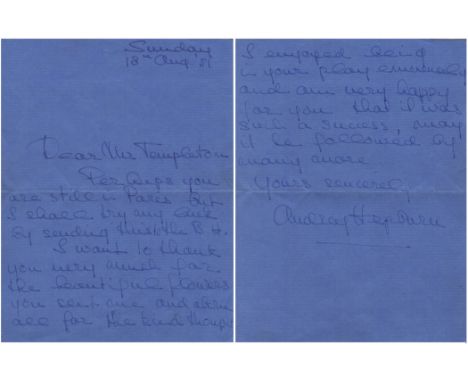 Sunday
18th Aug '51
Dear Mr Templeton
Perhaps you
are still in Paris but
I shall try my luck
by sending this
I want to thank
you very much for
the beautiful flowers
you sent me and above
all for the kind thought
I enjoyed being
in your play enormously
and am very happy
for you that it was
such a success, may
it be followed by
many more
Yours sincerely
Audrey Hepburn